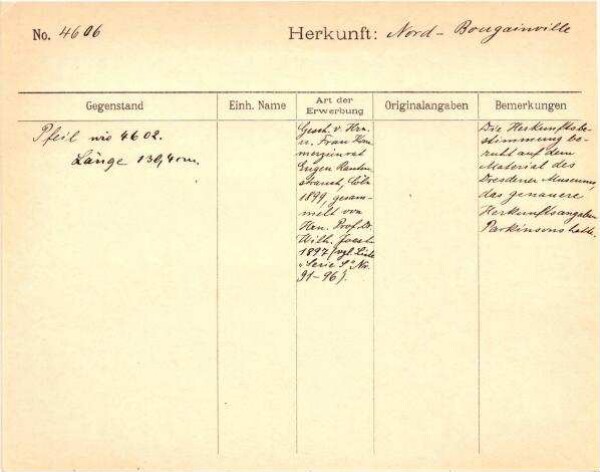 No. 4606
Herkunft: Nord-Bougainville
Gegenstand
Einh. Name
Art der Erwerbung
Originalangaben
Bemerkungen
Pfeil wie 4602.
Länge 130,4 cm.
Gesch. v. Hrn.
u. Frau Kom
merzienrat
Eugen Rauten
strauch, Cöln
1899, gesam-
melt von
Hrn. Prof. Dr.
Wilh. Joest
1897 (vgl. Liste
"Serie S" No.
91-96).
Die Herkunftsbe-
stimmung be-
ruht auf dem
Material des
Dresdener Museums,
das genauere
Herkunftsangaben
Parkinsons hatte.